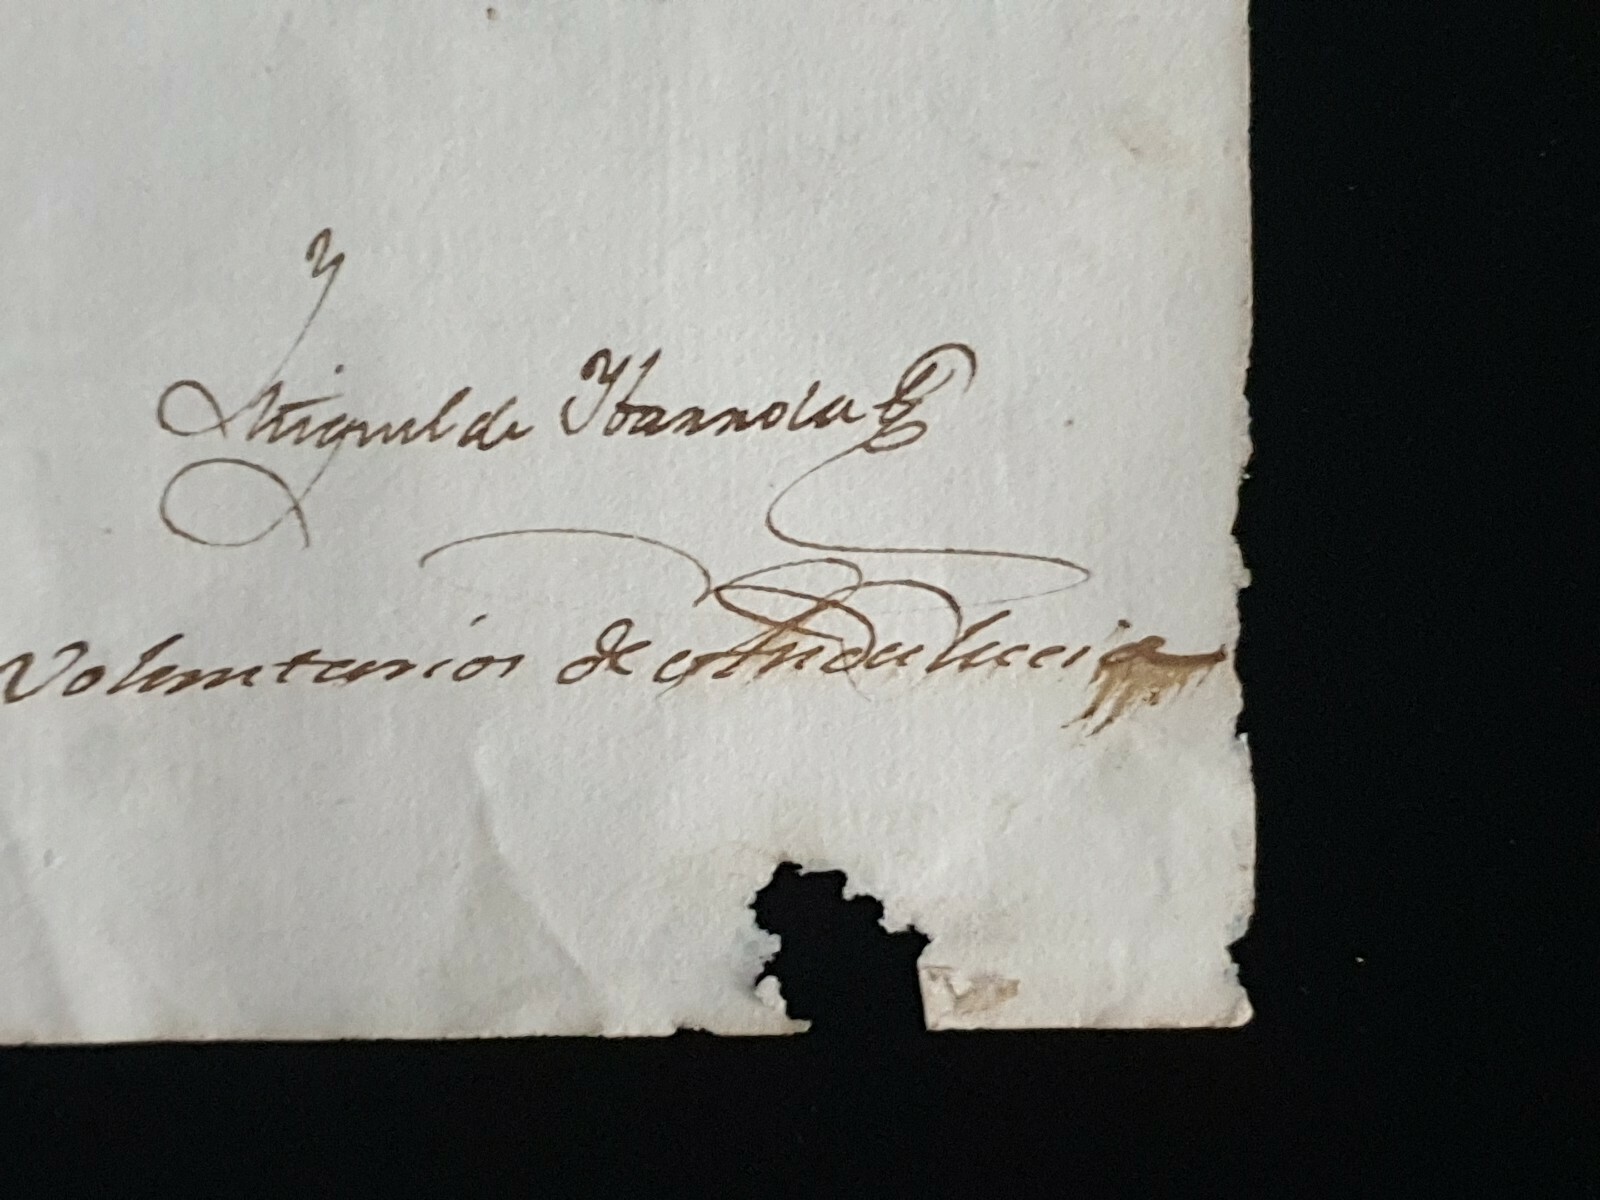 Miguel de Ybarrola
Voluntarios de Andalucia